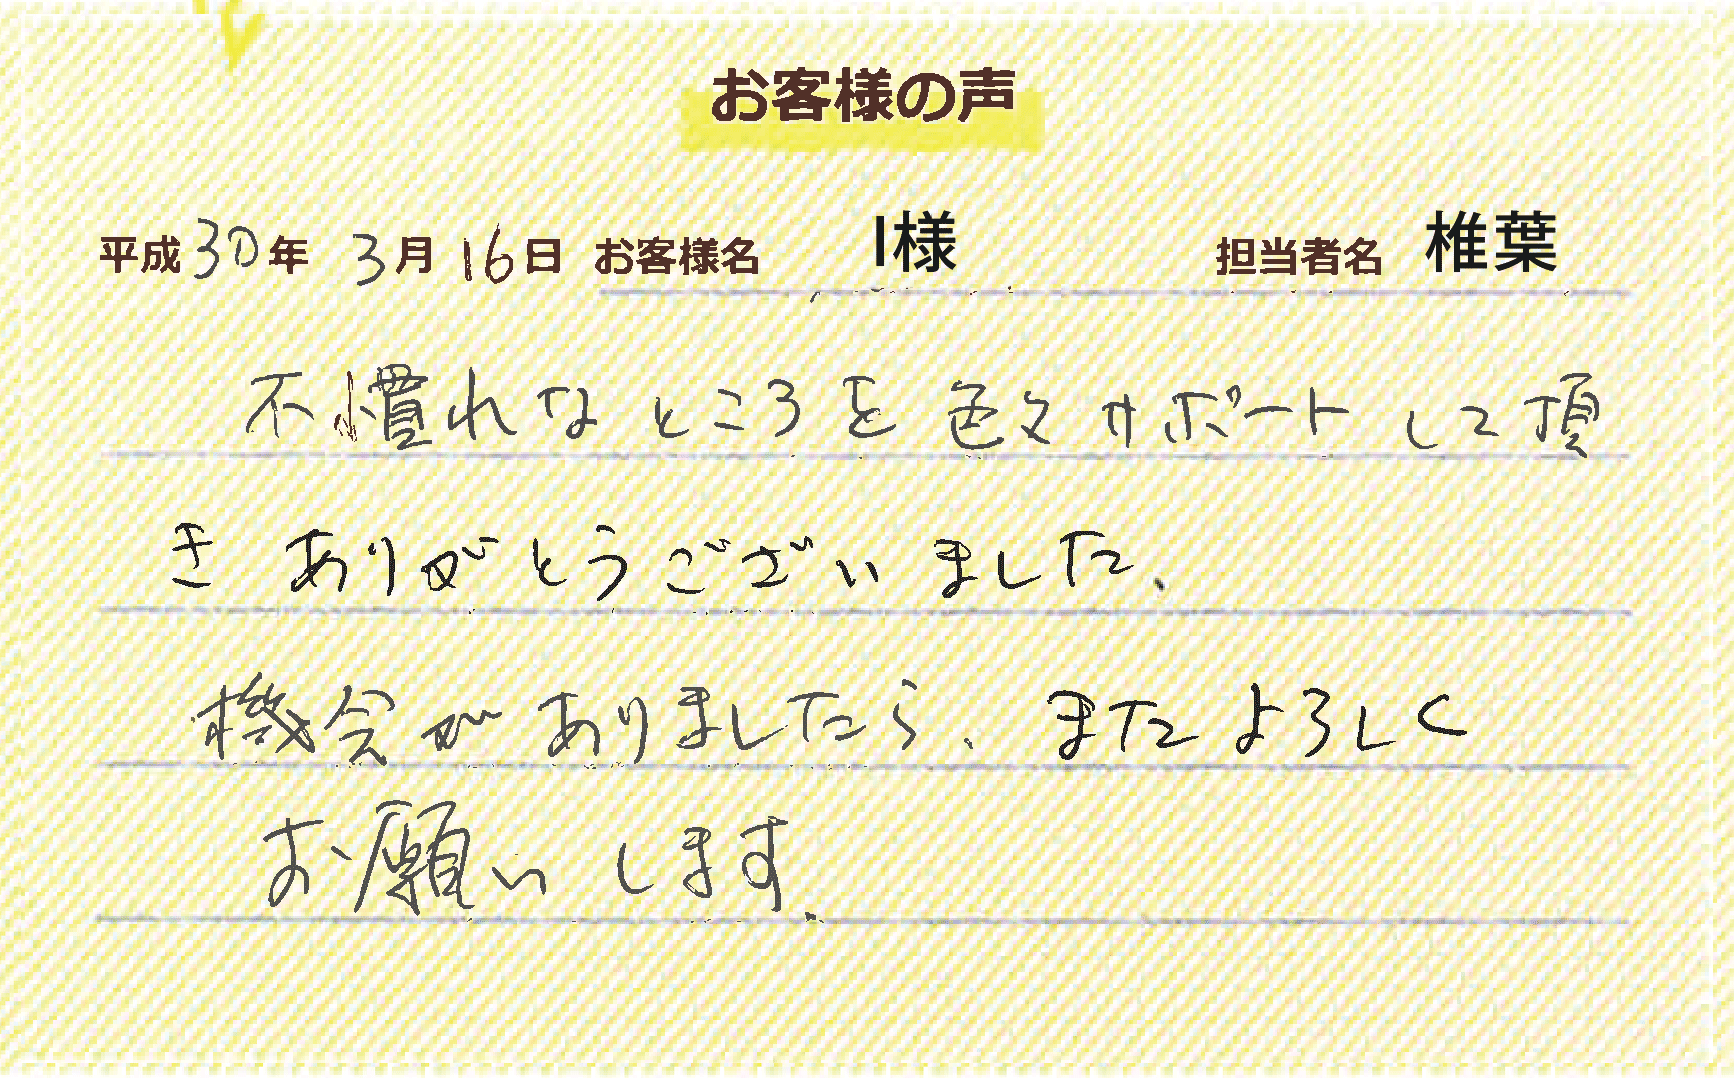 お客様の声
平成30年 3月16日 お客様名 I様 担当者名 椎葉
不慣れなところを色々サポートして頂
き ありがとうございました.
機会がありましたら、またよろしく
お願いします.